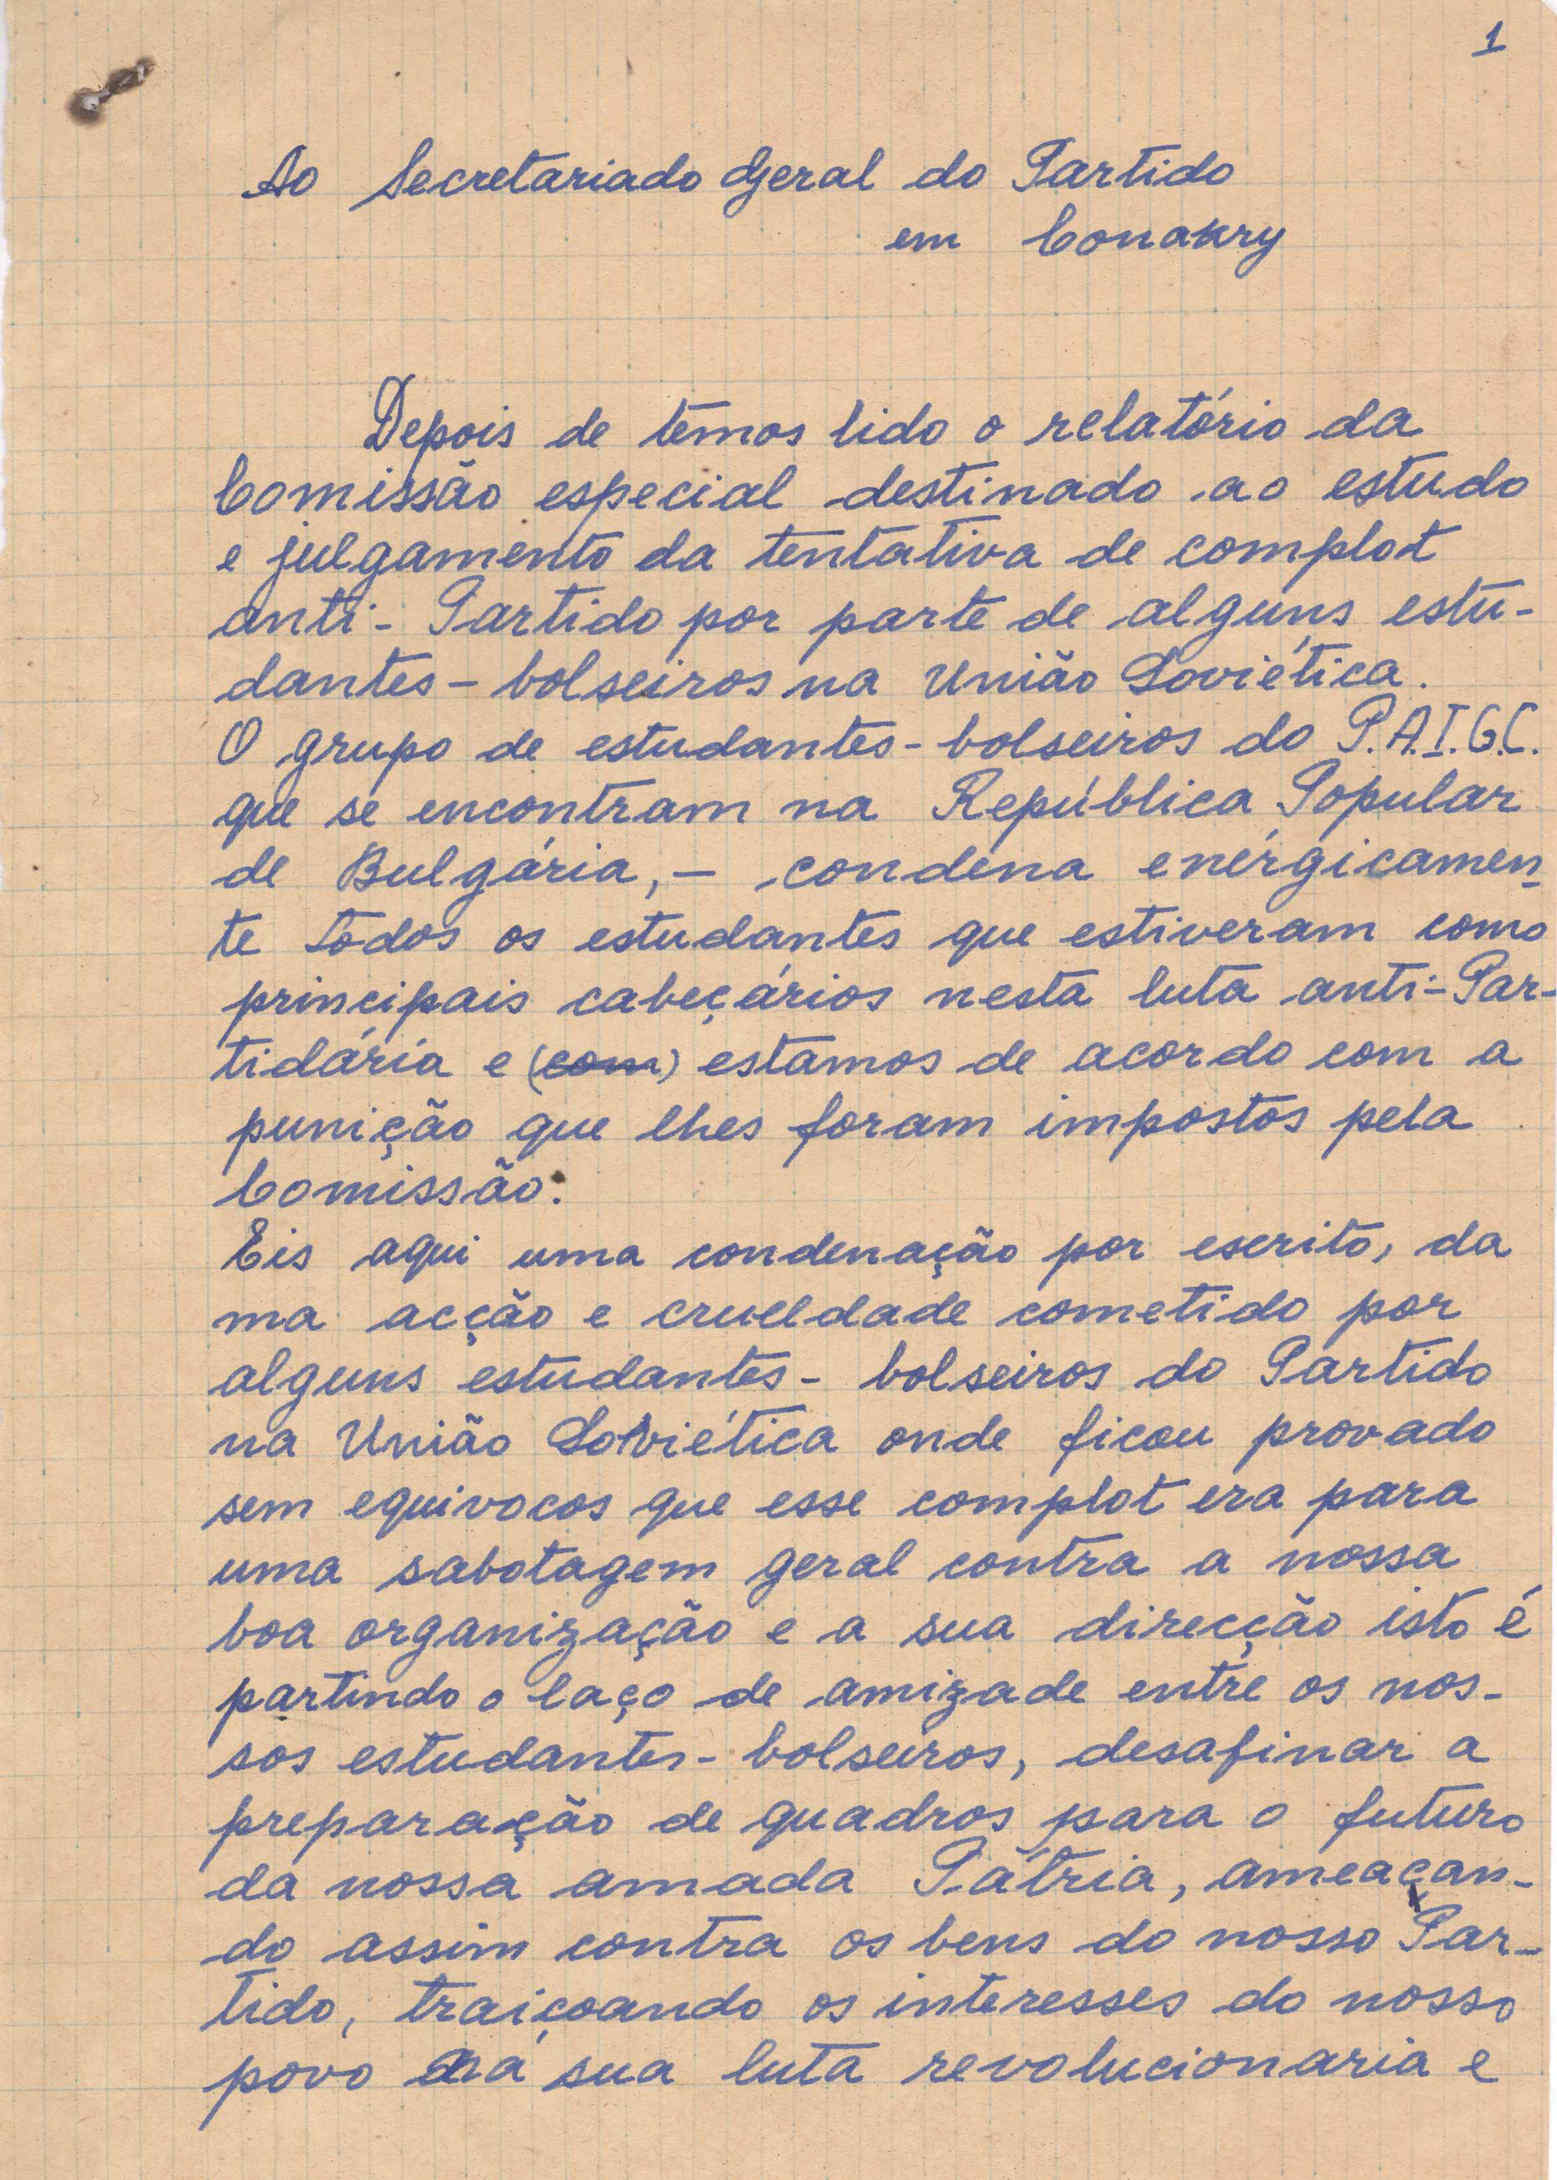 1
Ao Secretariado Geral do Partido
em Conakry
Depois de têmos lido o relatório da
Comissão especial destinado ao estudo
e julgamento da tentativa de complot
anti-Partido por parte de alguns estu-
dantes-bolseiros na União Soviética.
O grupo de estudantes-bolseiros do P.A.I.G.C.
que se encontram na República Popular
de Bulgária, - condena enérgicamen-
te todos os estudantes que estiveram como
principais cabeçários nesta luta anti-Par-
tidária e (com) estamos de acordo com a
punição que lhes foram impostos pela
Comissão.
Eis aqui uma condenação por escrito, da
ma acção e crueldade cometido por
alguns estudantes-bolseiros do Partido
na União Soviética onde ficou provado
sem equivocos que esse complot era para
uma sabotagem geral contra a nossa
boa organização e a sua direcção isto é
partindo o laço de amizade entre os nos-
sos estudantes-bolseiros, desafinar a
preparação de quadros para o futuro
da nossa amada Pátria, ameaçan-
do assim contra os bens do nosso Par-
tido, traiçoando os interesses do nosso
povo na sua luta revolucionaria e